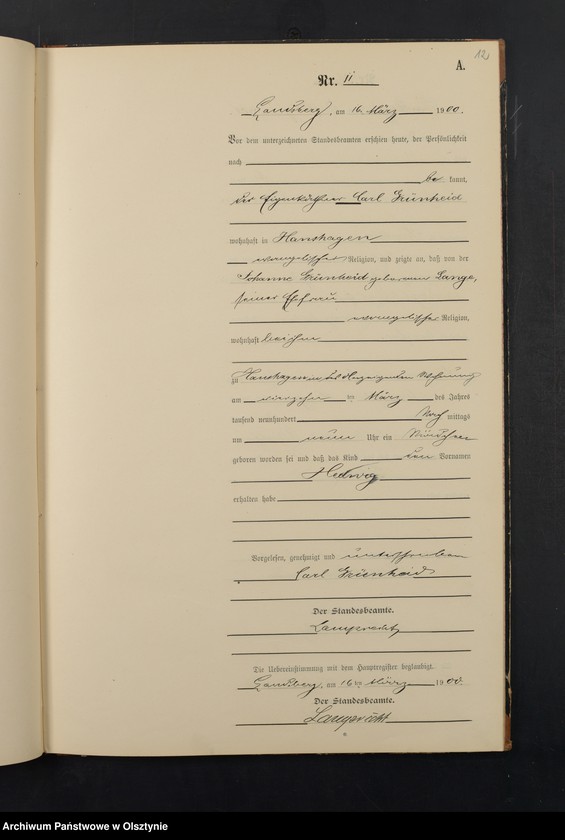 12
A.
Nr. 11
Landsberg, am 16 März 1900.
Vor dem unterzeichneten Standesbeamten erschien heute, der Persönlichkeit
nach
be kannt,
der Eigenkäthner Carl Grünheid
wohnhaft in Hanshagen
evangelischer Religion, und zeigte an, daß von der
Johanne Grünheid geborenen Lange,
seiner Ehefrau
evangelischer Religion,
wohnhaft bei ihm
zu Hanshagen in des Anzeigenden Wohnung
am vierzehn ten März des Jahres
tausend neunhundert Nach mittags
um neun Uhr ein Mädchen
geboren worden sei und daß das Kind den Vornamen
Hedwig
erhalten habe
Vorgelesen, genehmigt und unterschrieben
Carl Grünheid
Der Standesbeamte.
Lamprecht
Die Uebereinstimmung mit dem Hauptregister beglaubigt.
Landsberg, am 16ten März 1900.
Der Standesbeamte.
Lamprecht
Archiwum Państwowe w Olsztynie